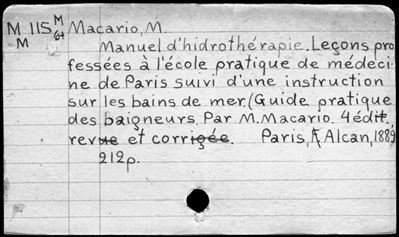 M 115 M Macario, M.
M 61
Manuel d'hidrothérapie. Leçons pro
fessées à l'école pratique de médeci
ne de Paris suivi d'une instruction
sur les bains de mer (Guide pratique
des baigneurs. Par M. Macario. 4 édit.
revue et corrigée. Paris, F Alcan, 1889
212p.